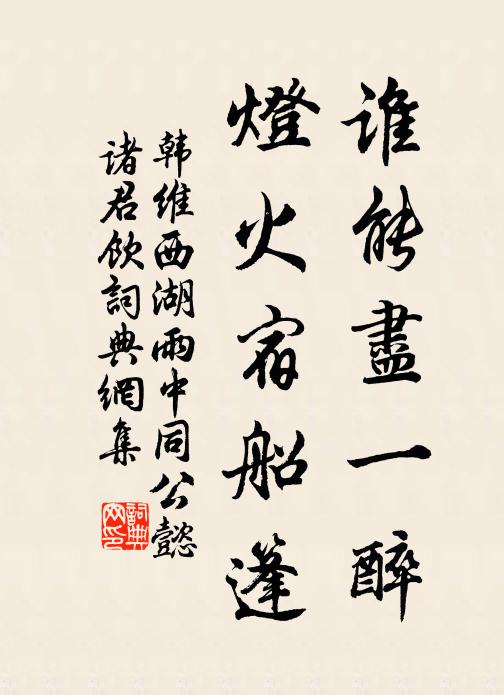 谁能盡一醉
燈火宿船篷
韩维西湖雨中同公懿
诸君饮詞典網集
詞典
网印